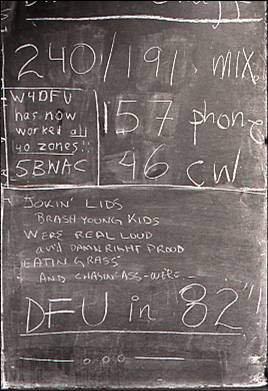 240/191 MIX
W4DFU
has now
worked all
40 zones!!
5BWAC
157 phone
46 CW
JOKIN' LIDS
BRASH YOUNG KIDS
WERE REAL LOUD
and DAMN RIGHT PROUD
EATIN GRASS
AND CHASIN' ASS-
DFU in '82"